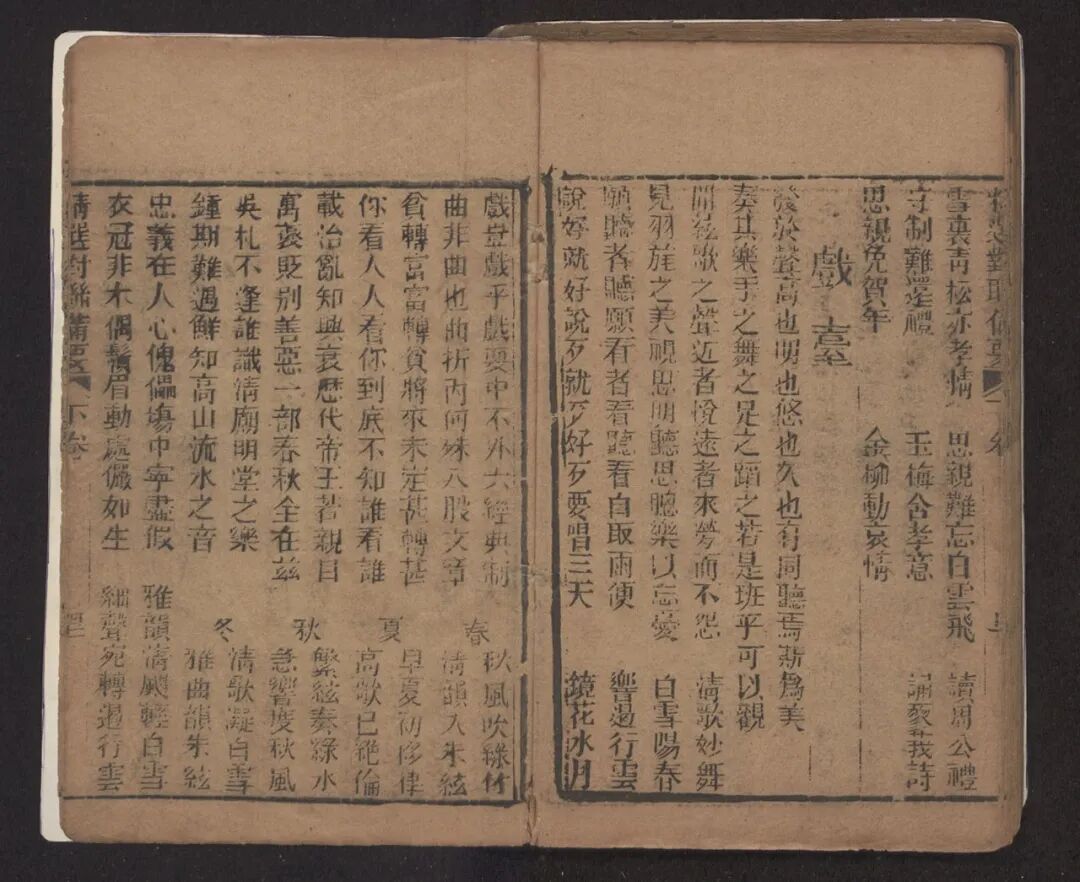 雪裏青松亦孝情 思親難忘白雲飛 讀周公禮
守制難還禮 玉梅含孝意 誦蓼莪詩
思親免賀年 金柳動哀情
戲臺
後於聲高也明也悠也久也有同聽焉斯爲美
奏其樂手之舞之足之蹈之若是班乎可以觀
聞絃歌之聲近者悅遠者來勞而不怨 清歌妙舞
見羽旄之美視思明聽思聰樂以忘憂 白雪陽春
願聽者聽願看者看聽看自取兩便 響遏行雲
說好就好說歹就歹好歹要唱三天 鏡花水月
戲豈戲乎戲耍中不外六經典制 春 秋風吹綠竹
曲非曲也曲折內何殊八股文章 清韻入朱絃
貧轉富富轉貧將來未定甚轉甚 夏 早夏初修律
你看人人看你到底不知誰看誰 高歌已絕倫
載治亂知興衰歷代帝王若親目 秋 繁絃奏綠水
寓褒貶別善惡一部春秋全在兹 急響度秋風
吳札不逢誰識清廟明堂之樂 冬 清歌凝白雪
鍾期難遇鮮知高山流水之音 雅曲韻朱絃
忠義在人心傀儡塲中寧盡假 雅韻清飃輕白雪
衣冠非木偶鬚眉動處儼如生 細聲宛轉遏行雲
精選對聯備要 下卷